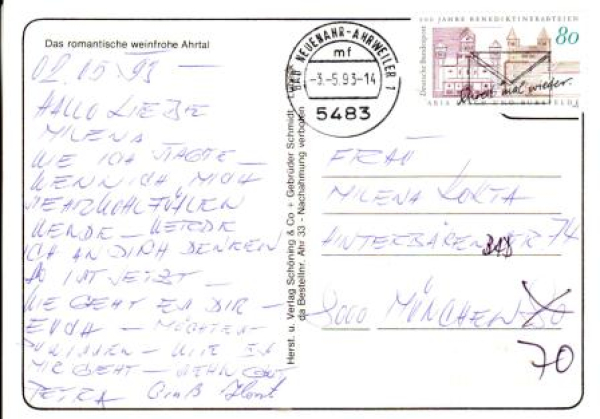 Das romantische weinfrohe Ahrtal
02.05.93 —
HALLO LIEBE
MILENA
WIE ICH SAGTE —
WENN ICH MICH
SEHR WOHL FÜHLEN
WERDE — WERDE
ICH AN DICH DENKEN
SO IST JETZT —
WIE GEHT ES DIR —
EUCH — MÖCHTEN
WISSEN — WIE ES
MIR GEHT — SEHR GUT
PETRA Gruß Horst
Herst. u. Verlag Schöning & Co + Gebrüder Schmidt
da Bestellnr. Ahr 33 - Nachahmung verboten
BAD NEUENAHR-AHRWEILER 1
mf
-3.-5.93-14
5483
900 JAHRE BENEDIKTINERABTEIEN
80
Deutsche Bundespost
Schreib mal wieder.
MARIA LAACH UND BURSFELDE
FRAU
MILENA
HINTERBÄREN BAD STR 74
8000 MÜNCHEN
70